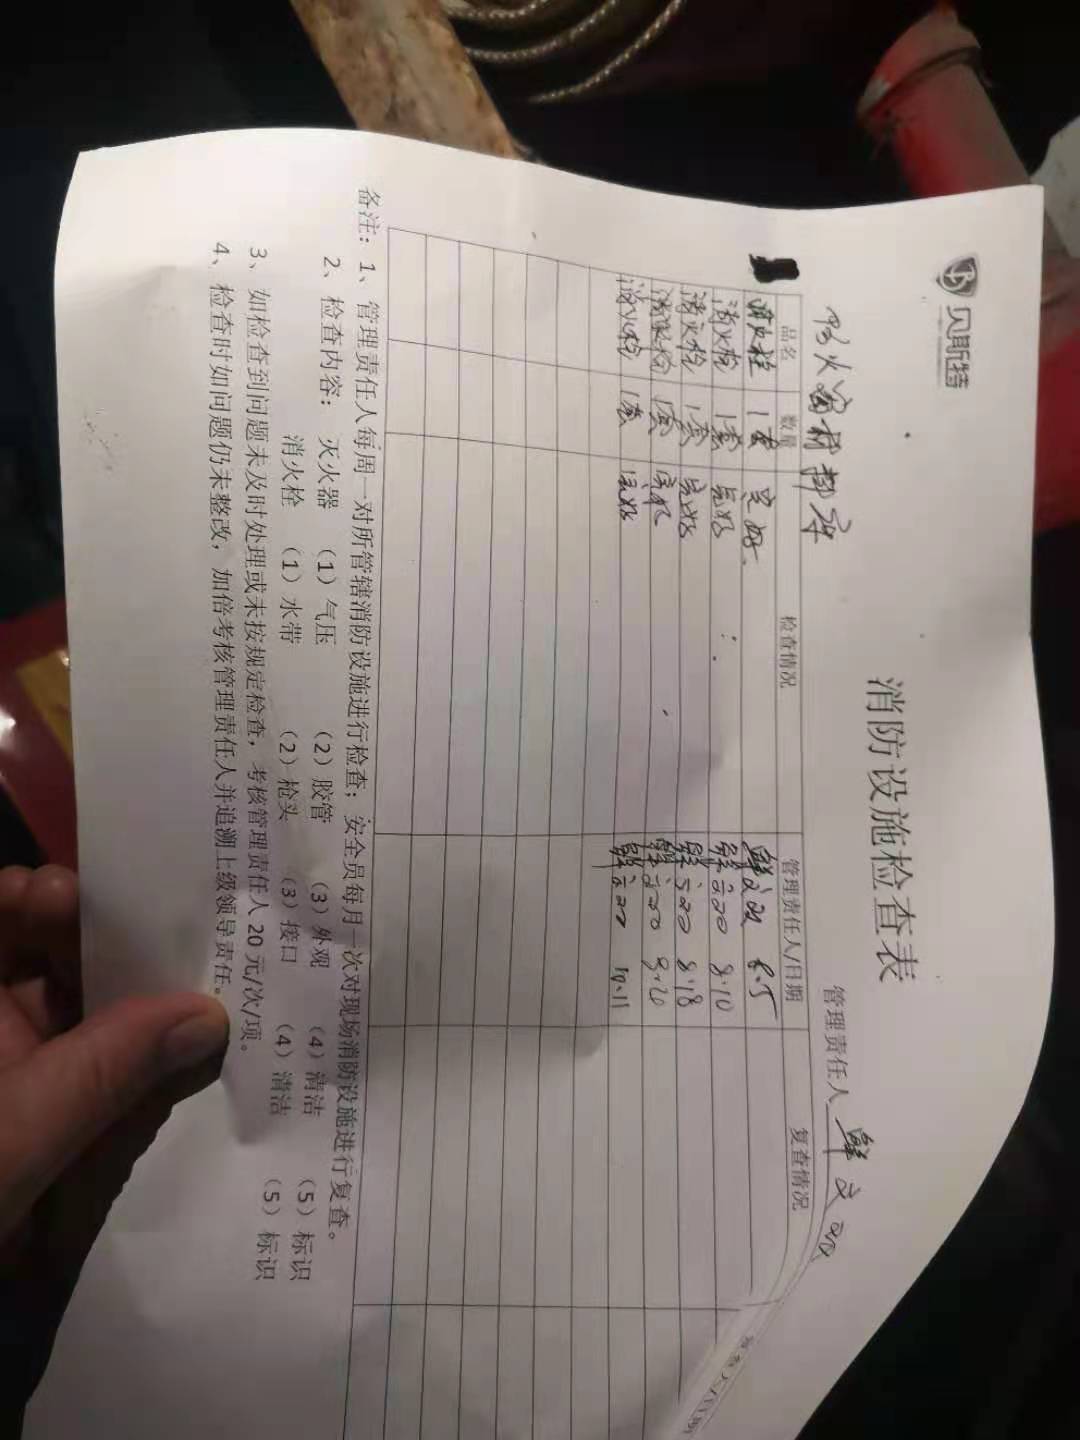 贝斯特
消防设施检查表
管理责任人
品名 数量 检查情况 管理责任人/日期 复查情况
消火栓 1套 完好 8.5
消火栓 1套 完好 8.10
消火栓 1套 完好 8.18
消火栓 1套 完好 9.20
消火栓 1套 完好 10.11
备注：1、管理责任人每周一对所管辖消防设施进行检查；安全员每月一次对现场消防设施进行复查。
2、检查内容： 灭火器 （1）气压 （2）胶管 （3）外观 （4）清洁 （5）标识
消火栓 （1）水带 （2）枪头 （3）接口 （4）清洁 （5）标识
3、如检查到问题未及时处理或未按规定检查，考核管理责任人20元/次/项。
4、检查时如问题仍未整改，加倍考核管理责任人并追溯上级领导责任。